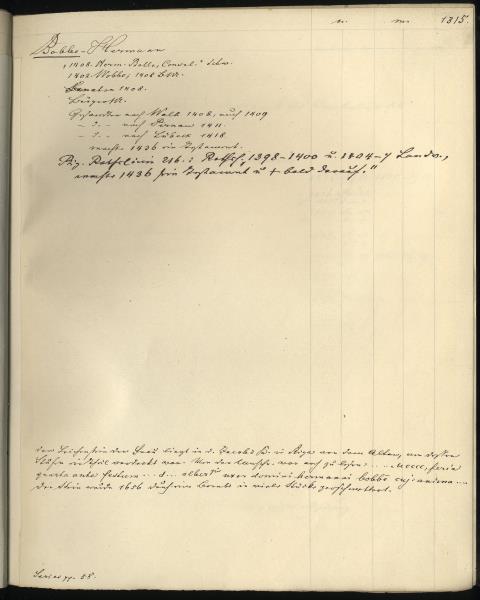 1315.
Bobbe - Hermann
1408. Herm. Bobbe, Consul.
1402. Wobbe, 1408
Senator 1408.
Bürgermstr.
Gesandter nach Walk 1408, auch 1409
- " - nach Pernau 1411.
- " - nach Lübeck 1418
machte 1436 sein Testament.
Rig. Rathslinie 216.: Rathsh. 1398-1400 u. 1404-7 Landv.,
machte 1436 sein Testament u † bald darauf."
Der Leichenstein der Frau liegt in d. Jacobi K. in Riga vor dem Altar, von dessen
Stufen er verdeckt war. Von der Umschr. war noch zu lesen: .... MCCCC, feria
quarta ante festum .... d... uxor domini hermanni bobbe cuj. anima ...
Der Stein wurde 1656 durch eine Bombe in viele Stücke zerschmettert.